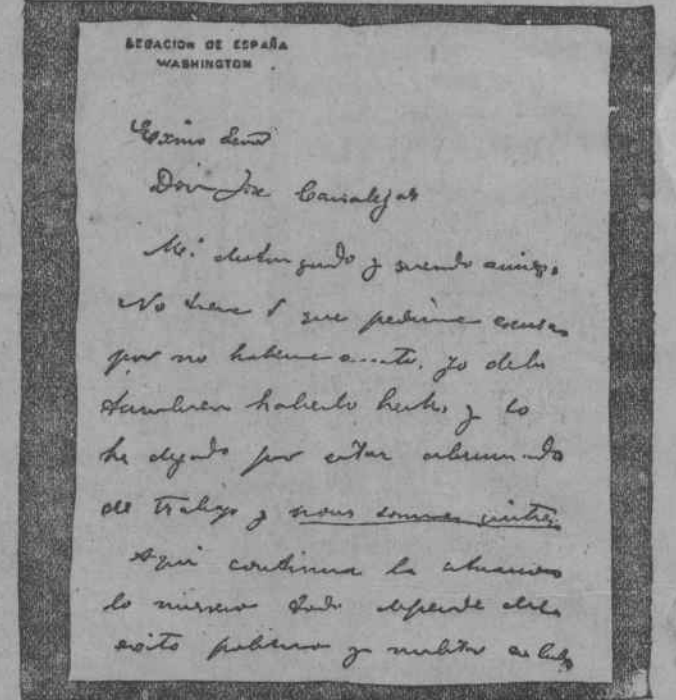 LEGACION DE ESPAÑA
WASHINGTON
Exmo Señor
Don José Canalejas
Mi distinguido y querido amigo:
No tiene V que pedirme excusas
por no haberme escrito, yo debí
tambien haberlo hecho y lo
he dejado por estar abrumado
de trabajo y nous sommes quittes
Aqui continua la situacion
lo mismo todo depende del
exito politico y militar en Cuba